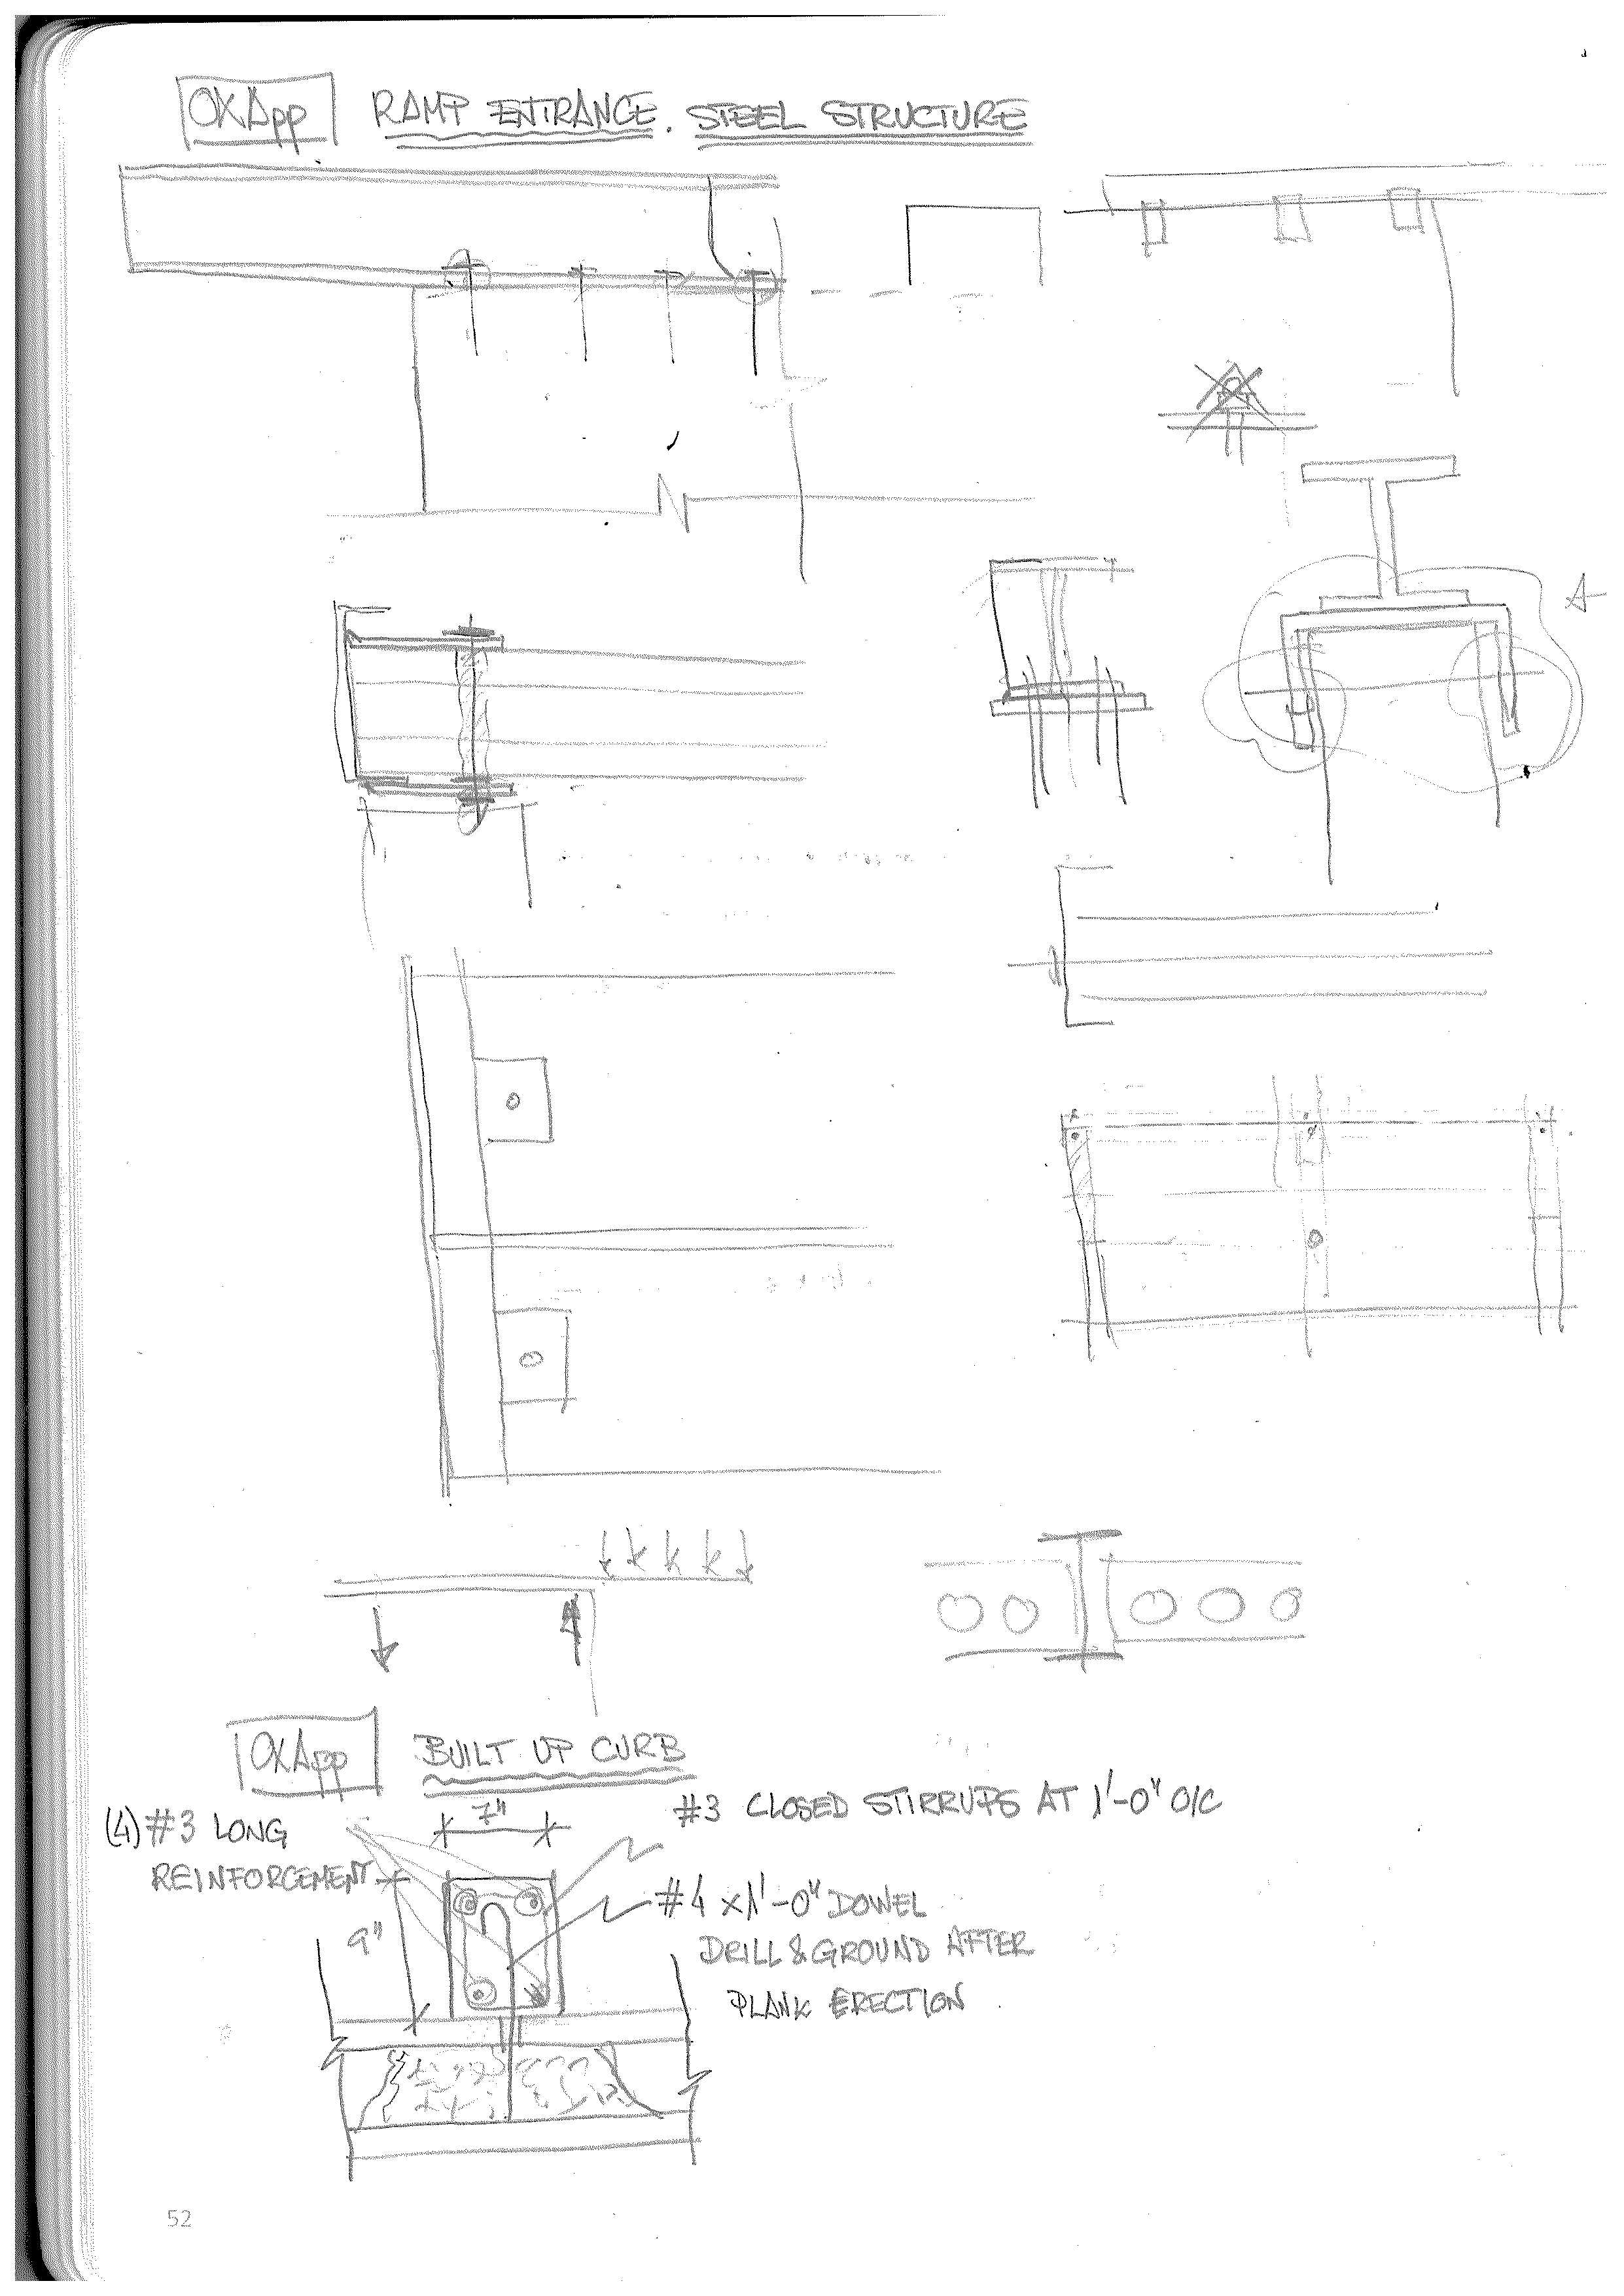 OXApp RAMP ENTRANCE. STEEL STRUCTURE
A
OXApp BUILT UP CURB
(4) #3 LONG
REINFORCEMENT
7"
#3 CLOSED STIRRUPS AT 1'-0" O/C
9"
#4 x 1'-0" DOWEL
DRILL & GROUND AFTER
PLANK ERECTION
52